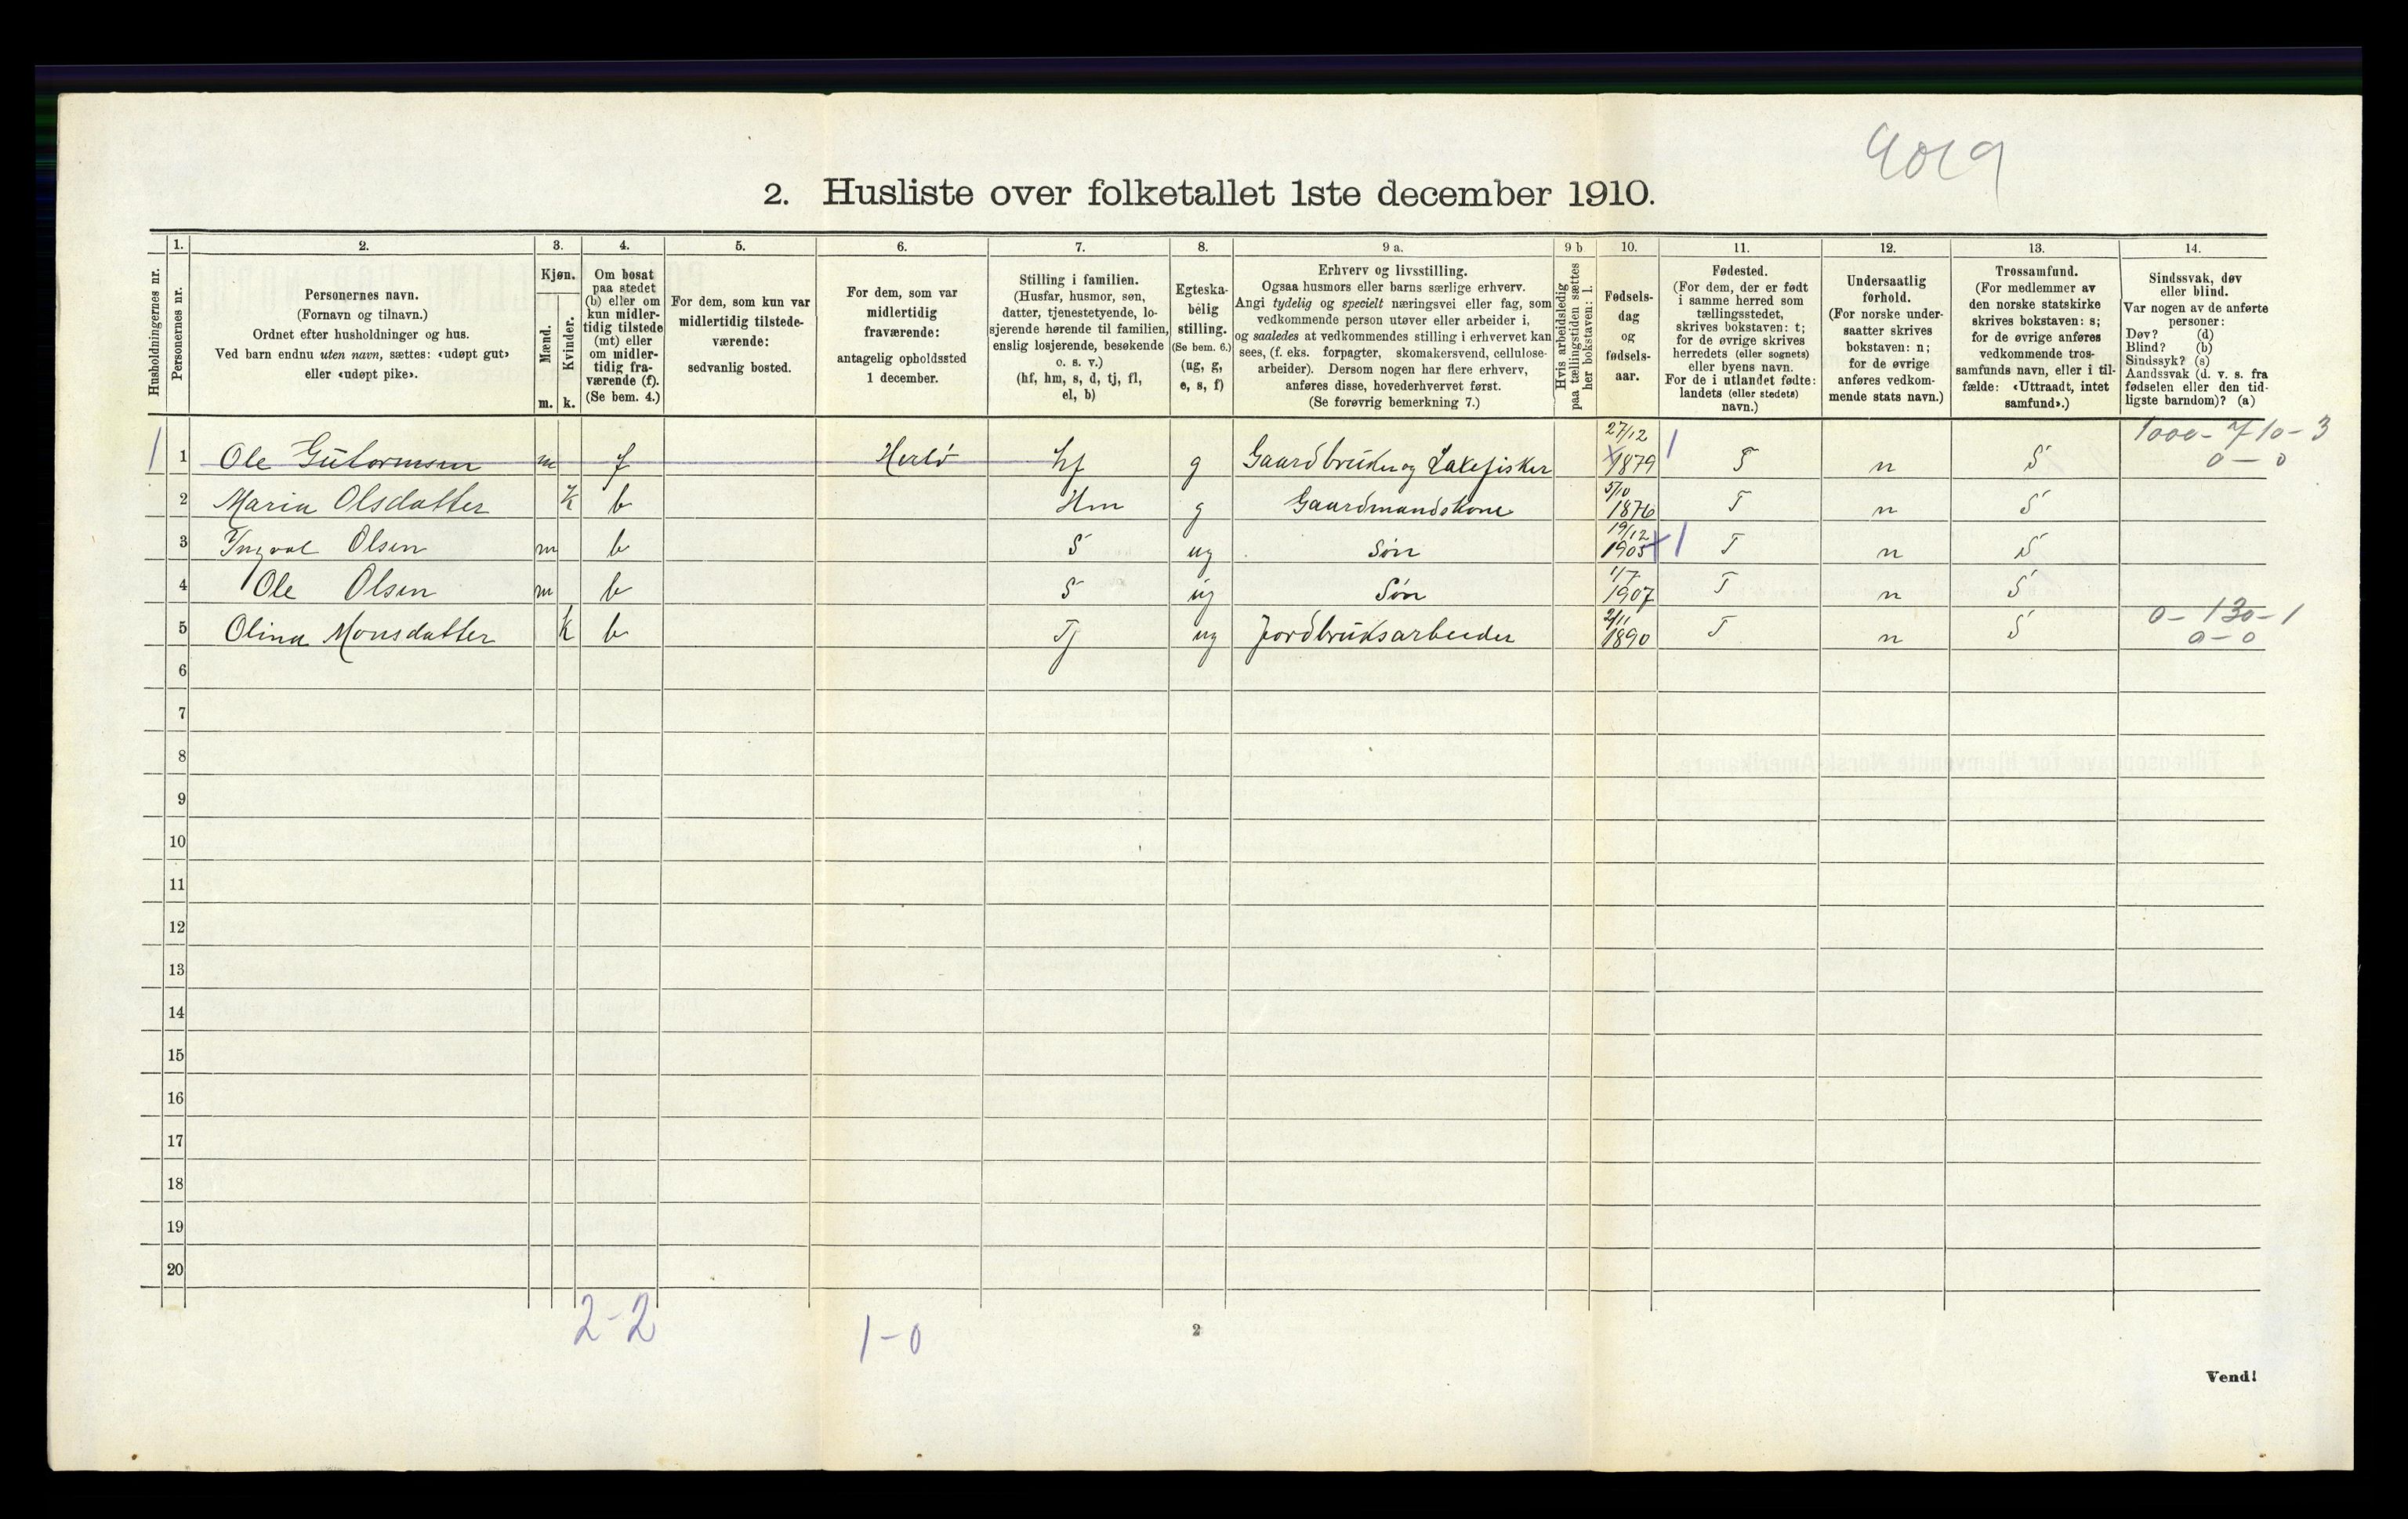 4019
2. Husliste over folketallet 1ste december 1910.
Husholdningernes nr.
1.
Personernes nr.
2.
Personernes navn.
(Fornavn og tilnavn.)
Ordnet efter husholdninger og hus.
Ved barn endnu uten navn, sættes: «udøpt gut»
eller «udøpt pike».
3.
Kjøn.
Mænd.
Kvinder.
m. k.
4.
Om bosat
paa stedet
(b) eller om
kun midler-
tidig tilstede
(mt) eller
om midler-
tidig fra-
værende (f).
(Se bem. 4.)
5.
For dem, som kun var
midlertidig tilstede-
værende:
sedvanlig bosted.
6.
For dem, som var
midlertidig
fraværende:
antagelig opholdssted
1 december.
7.
Stilling i familien.
(Husfar, husmor, søn,
datter, tjenestetyende, lo-
sjerende hørende til familien,
enslig losjerende, besøkende
o. s. v.)
(hf, hm, s, d, tj, fl,
el, b)
8.
Egteska-
belig
stilling.
(Se bem. 6.)
(ug, g,
e, s, f)
9 a.
Erhverv og livsstilling.
Ogsaa husmors eller barns særlige erhverv.
Angi tydelig og specielt næringsvei eller fag, som
vedkommende person utøver eller arbeider i,
og saaledes at vedkommendes stilling i erhvervet kan
sees, (f. eks. forpagter, skomakersvend, cellulose-
arbeider). Dersom nogen har flere erhverv,
anføres disse, hovederhvervet først.
(Se forøvrig bemerkning 7.)
9 b
Hvis arbeidsledig
paa tællingstiden sættes
her bokstaven: l.
10.
Fødsels-
dag
og
fødsels-
aar.
11.
Fødested.
(For dem, der er født
i samme herred som
tællingsstedet,
skrives bokstaven: t;
for de øvrige skrives
herredets (eller sognets)
eller byens navn.
For de i utlandet fødte:
landets (eller stedets)
navn.)
12.
Undersaatlig
forhold.
(For norske under-
saatter skrives
bokstaven: n;
for de øvrige
anføres vedkom-
mende stats navn.)
13.
Trossamfund.
(For medlemmer av
den norske statskirke
skrives bokstaven: s;
for de øvrige anføres
vedkommende tros-
samfunds navn, eller i til-
fælde: «Uttraadt, intet
samfund».)
14.
Sindssvak, døv
eller blind.
Var nogen av de anførte
personer:
Døv? (d)
Blind? (b)
Sindssyk? (s)
Aandssvak (d. v. s. fra
fødselen eller den tid-
ligste barndom)? (a)
1 1 Ole Gutormsen m f Herlö hf g Gaardbruker og Laxefisker 27/12 1879 1 T n S 1000-710-3
0-0
2 Maria Olsdatter k b Hm g Gaardmandskone 5/10 1876 T n S
3 Ingval Olsen m b S ug Søn 19/12 1905 1 T n S
4 Ole Olsen m b S ug Søn 1/7 1907 T n S
5 Olina Monsdatter k b Tj ug Jordbruksarbeider 2/11 1890 T n S 0-130-1
0-0
6
7
8
9
10
11
12
13
14
15
16
17
18
19
20
2-2
1-0
2
Vend!